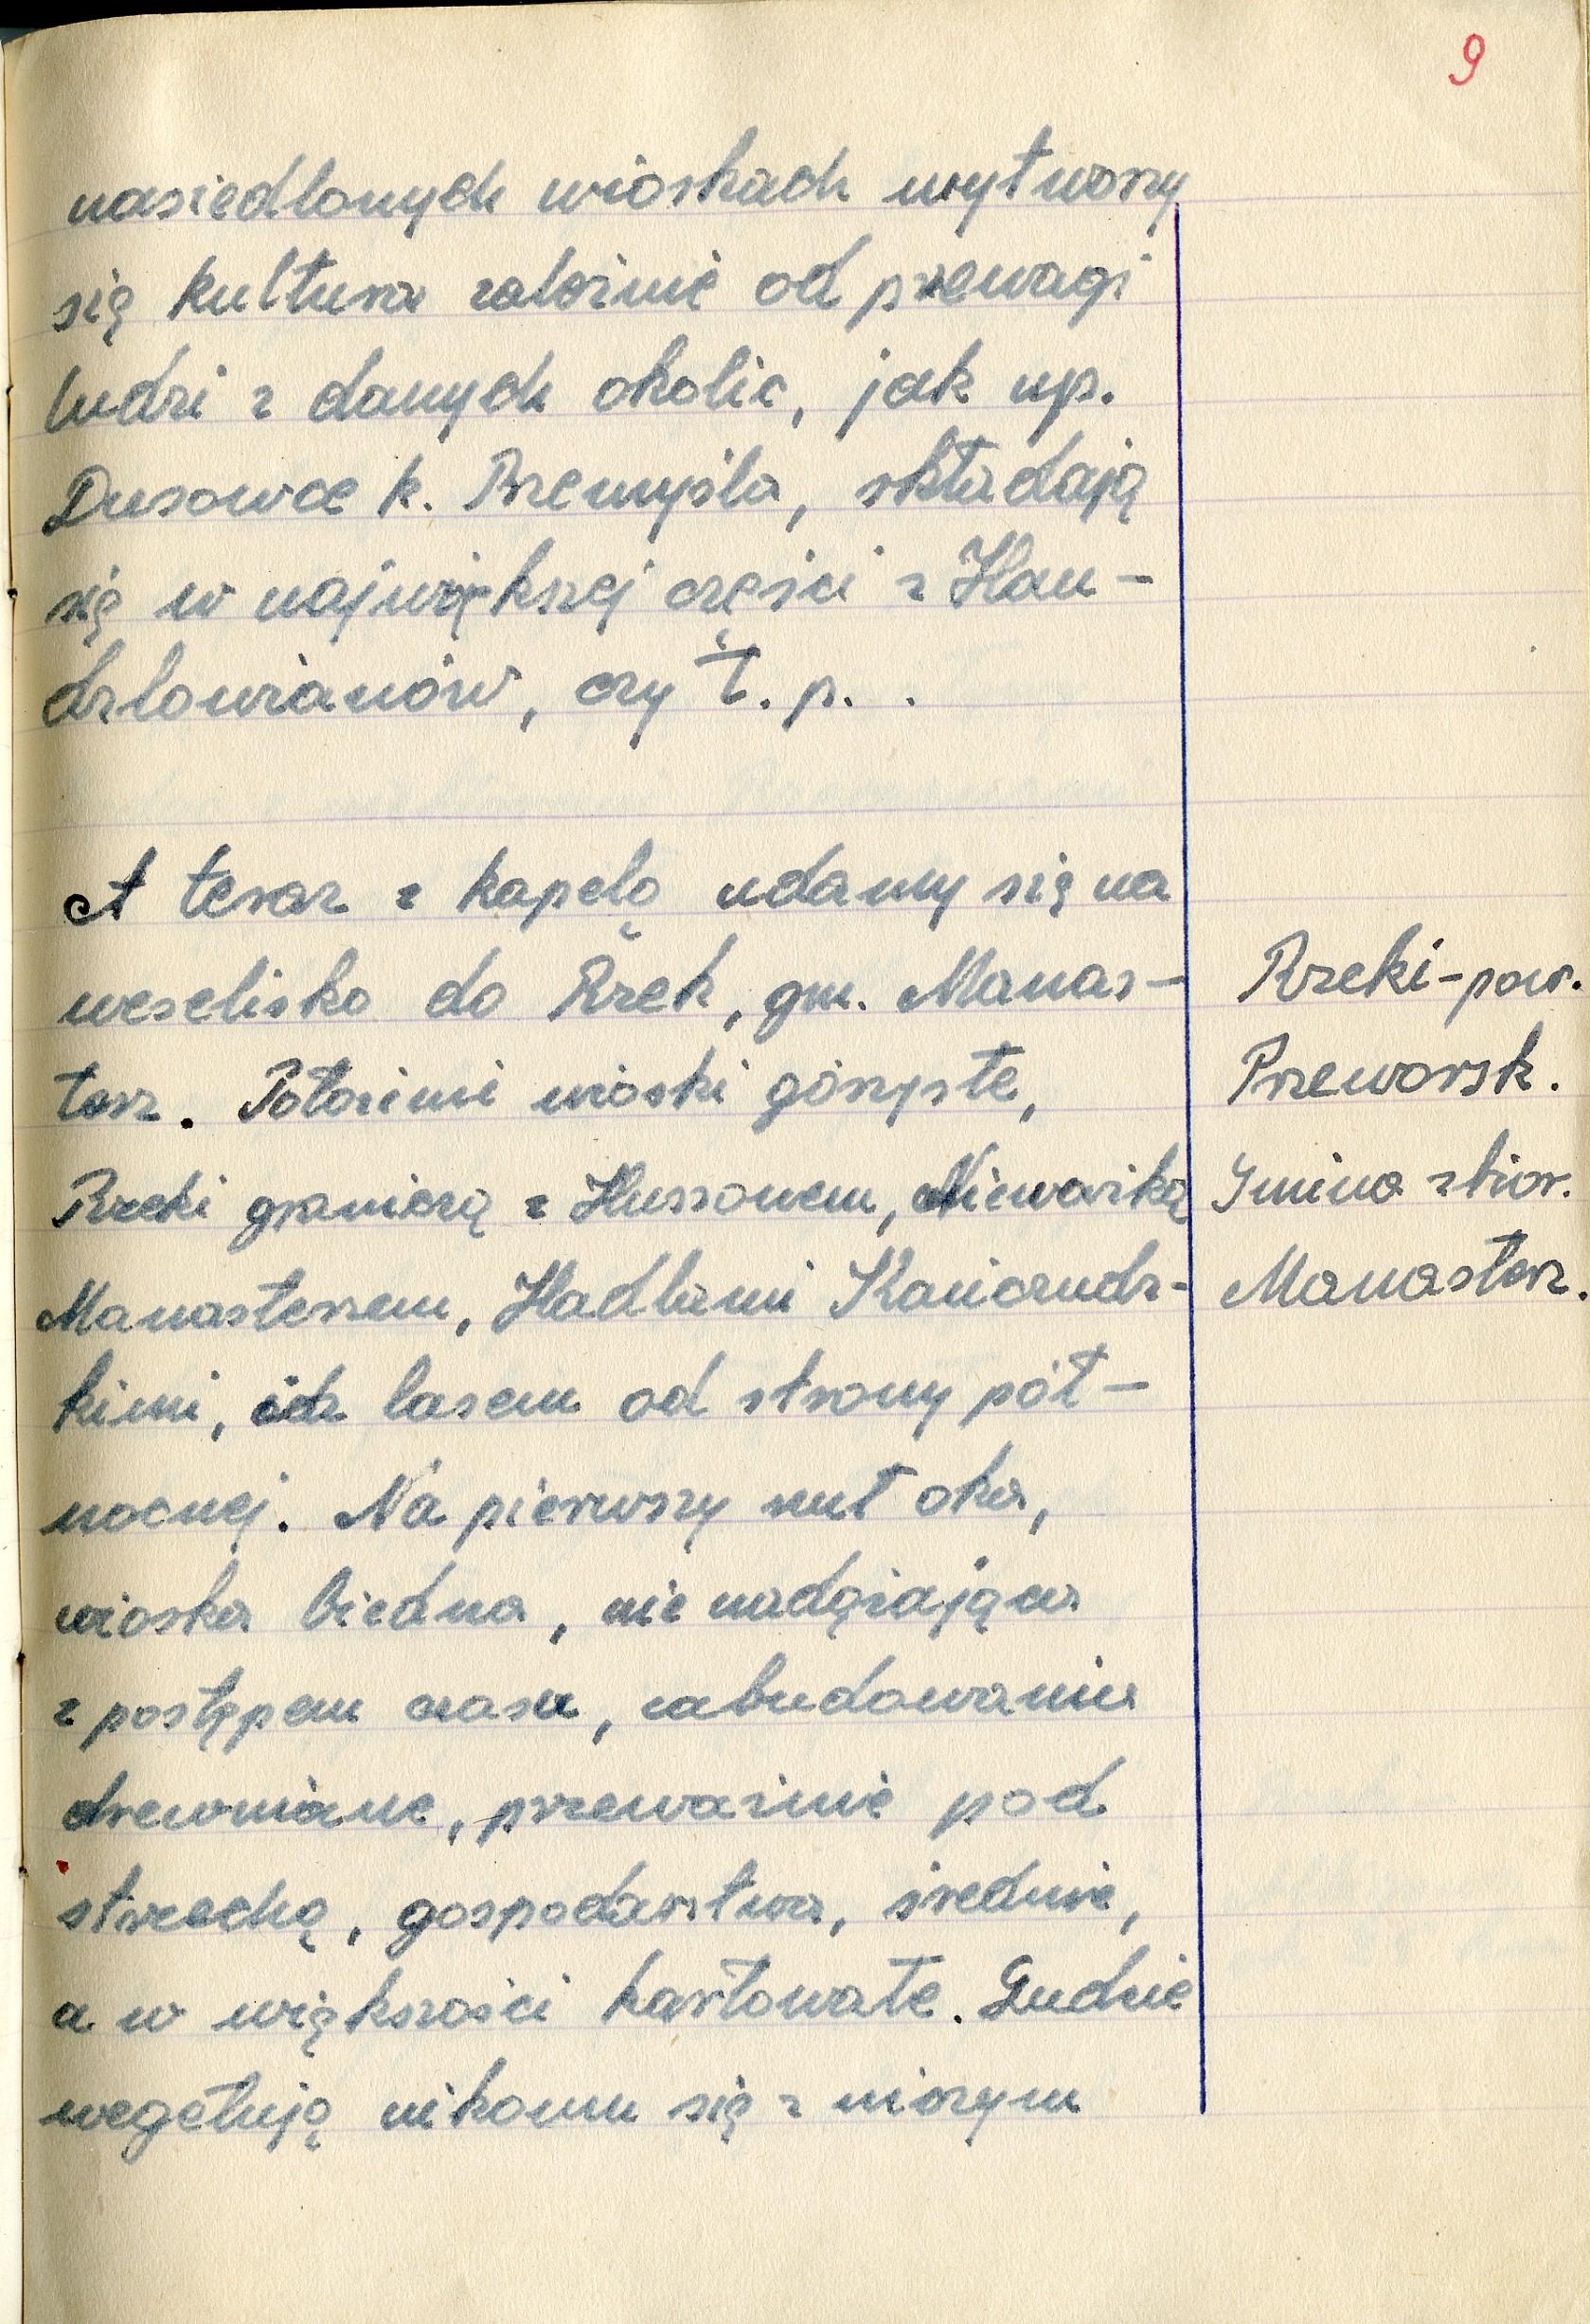 9
nasiedlonych wioskach wytworzy
się kultura zależnie od przewagi
ludzi z danych okolic, jak np.
Dusowce k. Przemyśla, składają
się w największej części z Han-
dzlowianów, czy t. p. .
A teraz z kapelą udamy się na
weselisko do Rzek, gm. Manas-
terz. Położenie wioski górzyste,
Rzeki graniczą z Hussowem, Niewarką
Manasterzem, Hadlami Kańczudz-
kimi, lasem od strony pół-
nocnej. Na pierwszy rzut oka,
wioska biedna, nie nadążająca
z postępem czasu, zabudowania
drewniane, przeważnie pod
strzechą, gospodarstwa, średnie,
a w większości karłowate. Ludzie
wegetują nikomu się z niczym
Rzeki-pow.
Przeworsk.
Gmina zbior.
Manasterz.